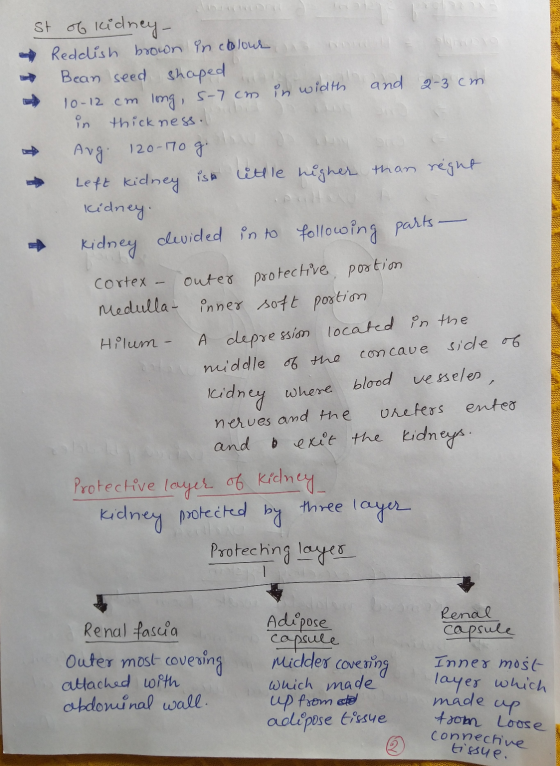 St of kidney -
→ Reddish brown in colour
→ Bean seed shaped
→ 10-12 cm long, 5-7 cm in width and 2-3 cm
in thickness.
→ Avg. 120-170 g.
→ Left kidney is little higher than right
kidney.
→ kidney divided in to following parts —
Cortex - outer protective portion
Medulla - inner soft portion
Hilum - A depression located in the
middle of the concave side of
kidney where blood vesseles,
nerves and the ureters enter
and exit the kidneys.
Protective layer of kidney -
kidney protected by three layer
Protecting layer
Renal fascia
Outer most covering
attached with
abdominal wall.
Adipose
capsule
Midder covering
which made
up from
adipose tissue
Renal
capsule
Inner most
layer which
made up
from Loose
connective
tissue.
2